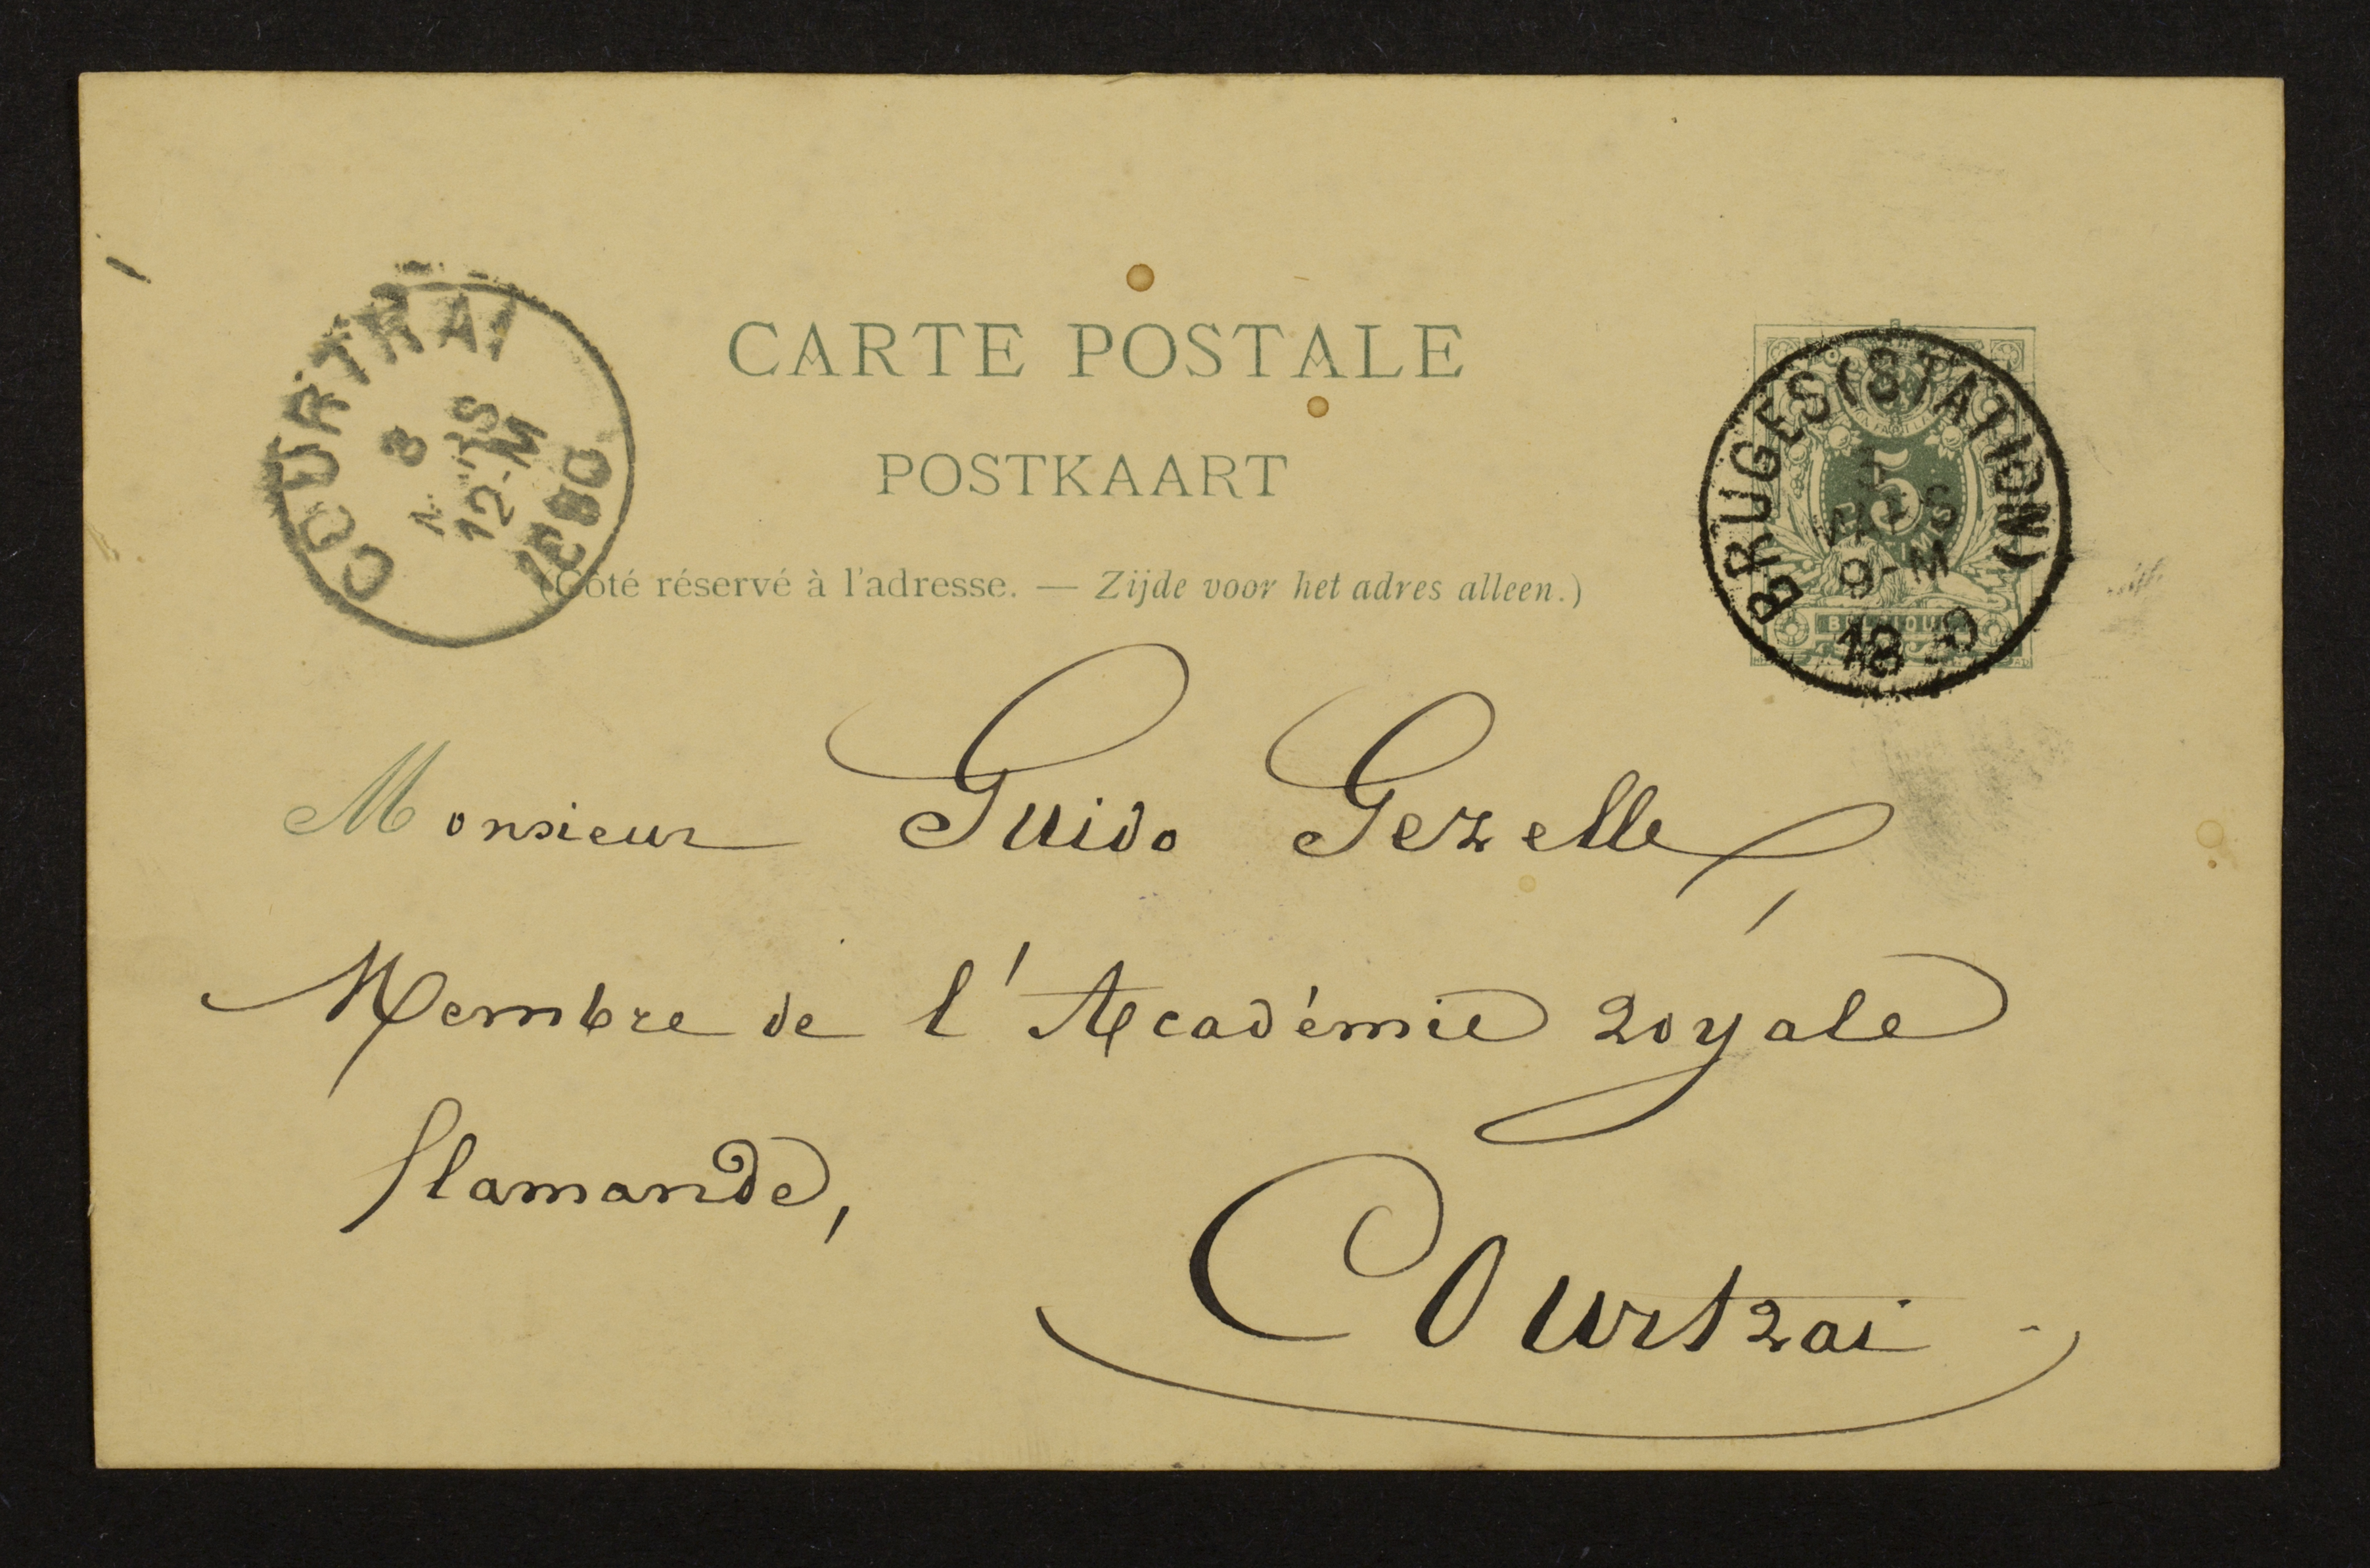 CARTE POSTALE
POSTKAART
(Côté réservé à l'adresse. — Zijde voor het adres alleen.)
COURTRAI
8
12-M
BRUGES (STATION)
5
9-M
Monsieur Guido Gezelle,
Membre de l'Académie royale
flamande,
Courtrai